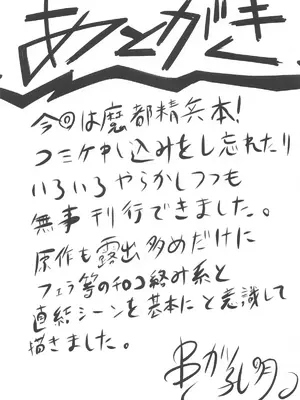 あとがき
今回は魔都精兵本!
コミケ申し込みをし忘れたり
いろいろやらかしつつも
無事刊行できました。
原作も露出多めだけに
フェラ等のチ〇コ絡み系と
直結シーンを基本にと意識して
描きました。